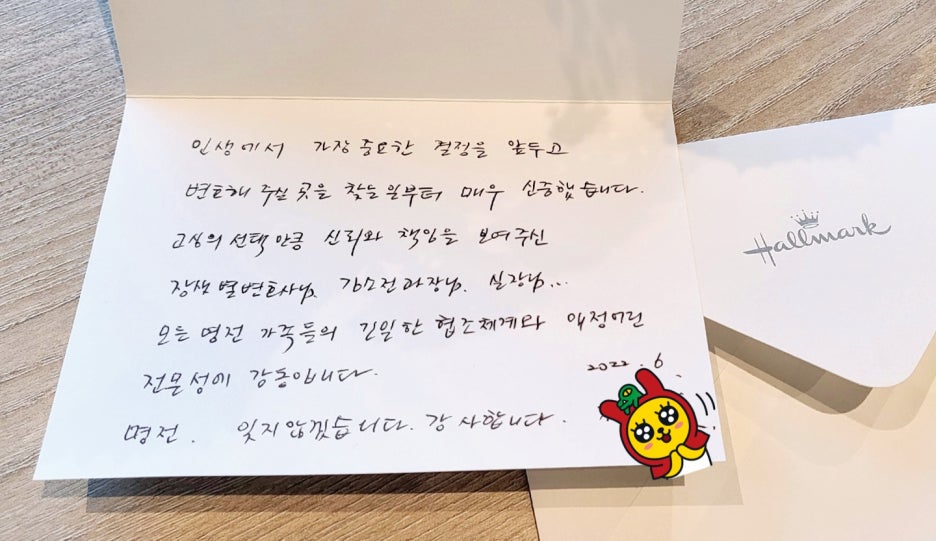 인생에서 가장 중요한 결정을 앞두고
변호해 주실 곳을 찾는 일부터 매우 신중했습니다.
고심의 선택 만큼 신뢰와 책임을 보여주신
장샛별변호사님, 김소전과장님, 실장님...
모든 명전 가족들의 긴밀한 협조체계와 애정어린
전문성에 감동입니다.
2022. 6.
명전. 잊지않겠습니다. 감사합니다.
Hallmark